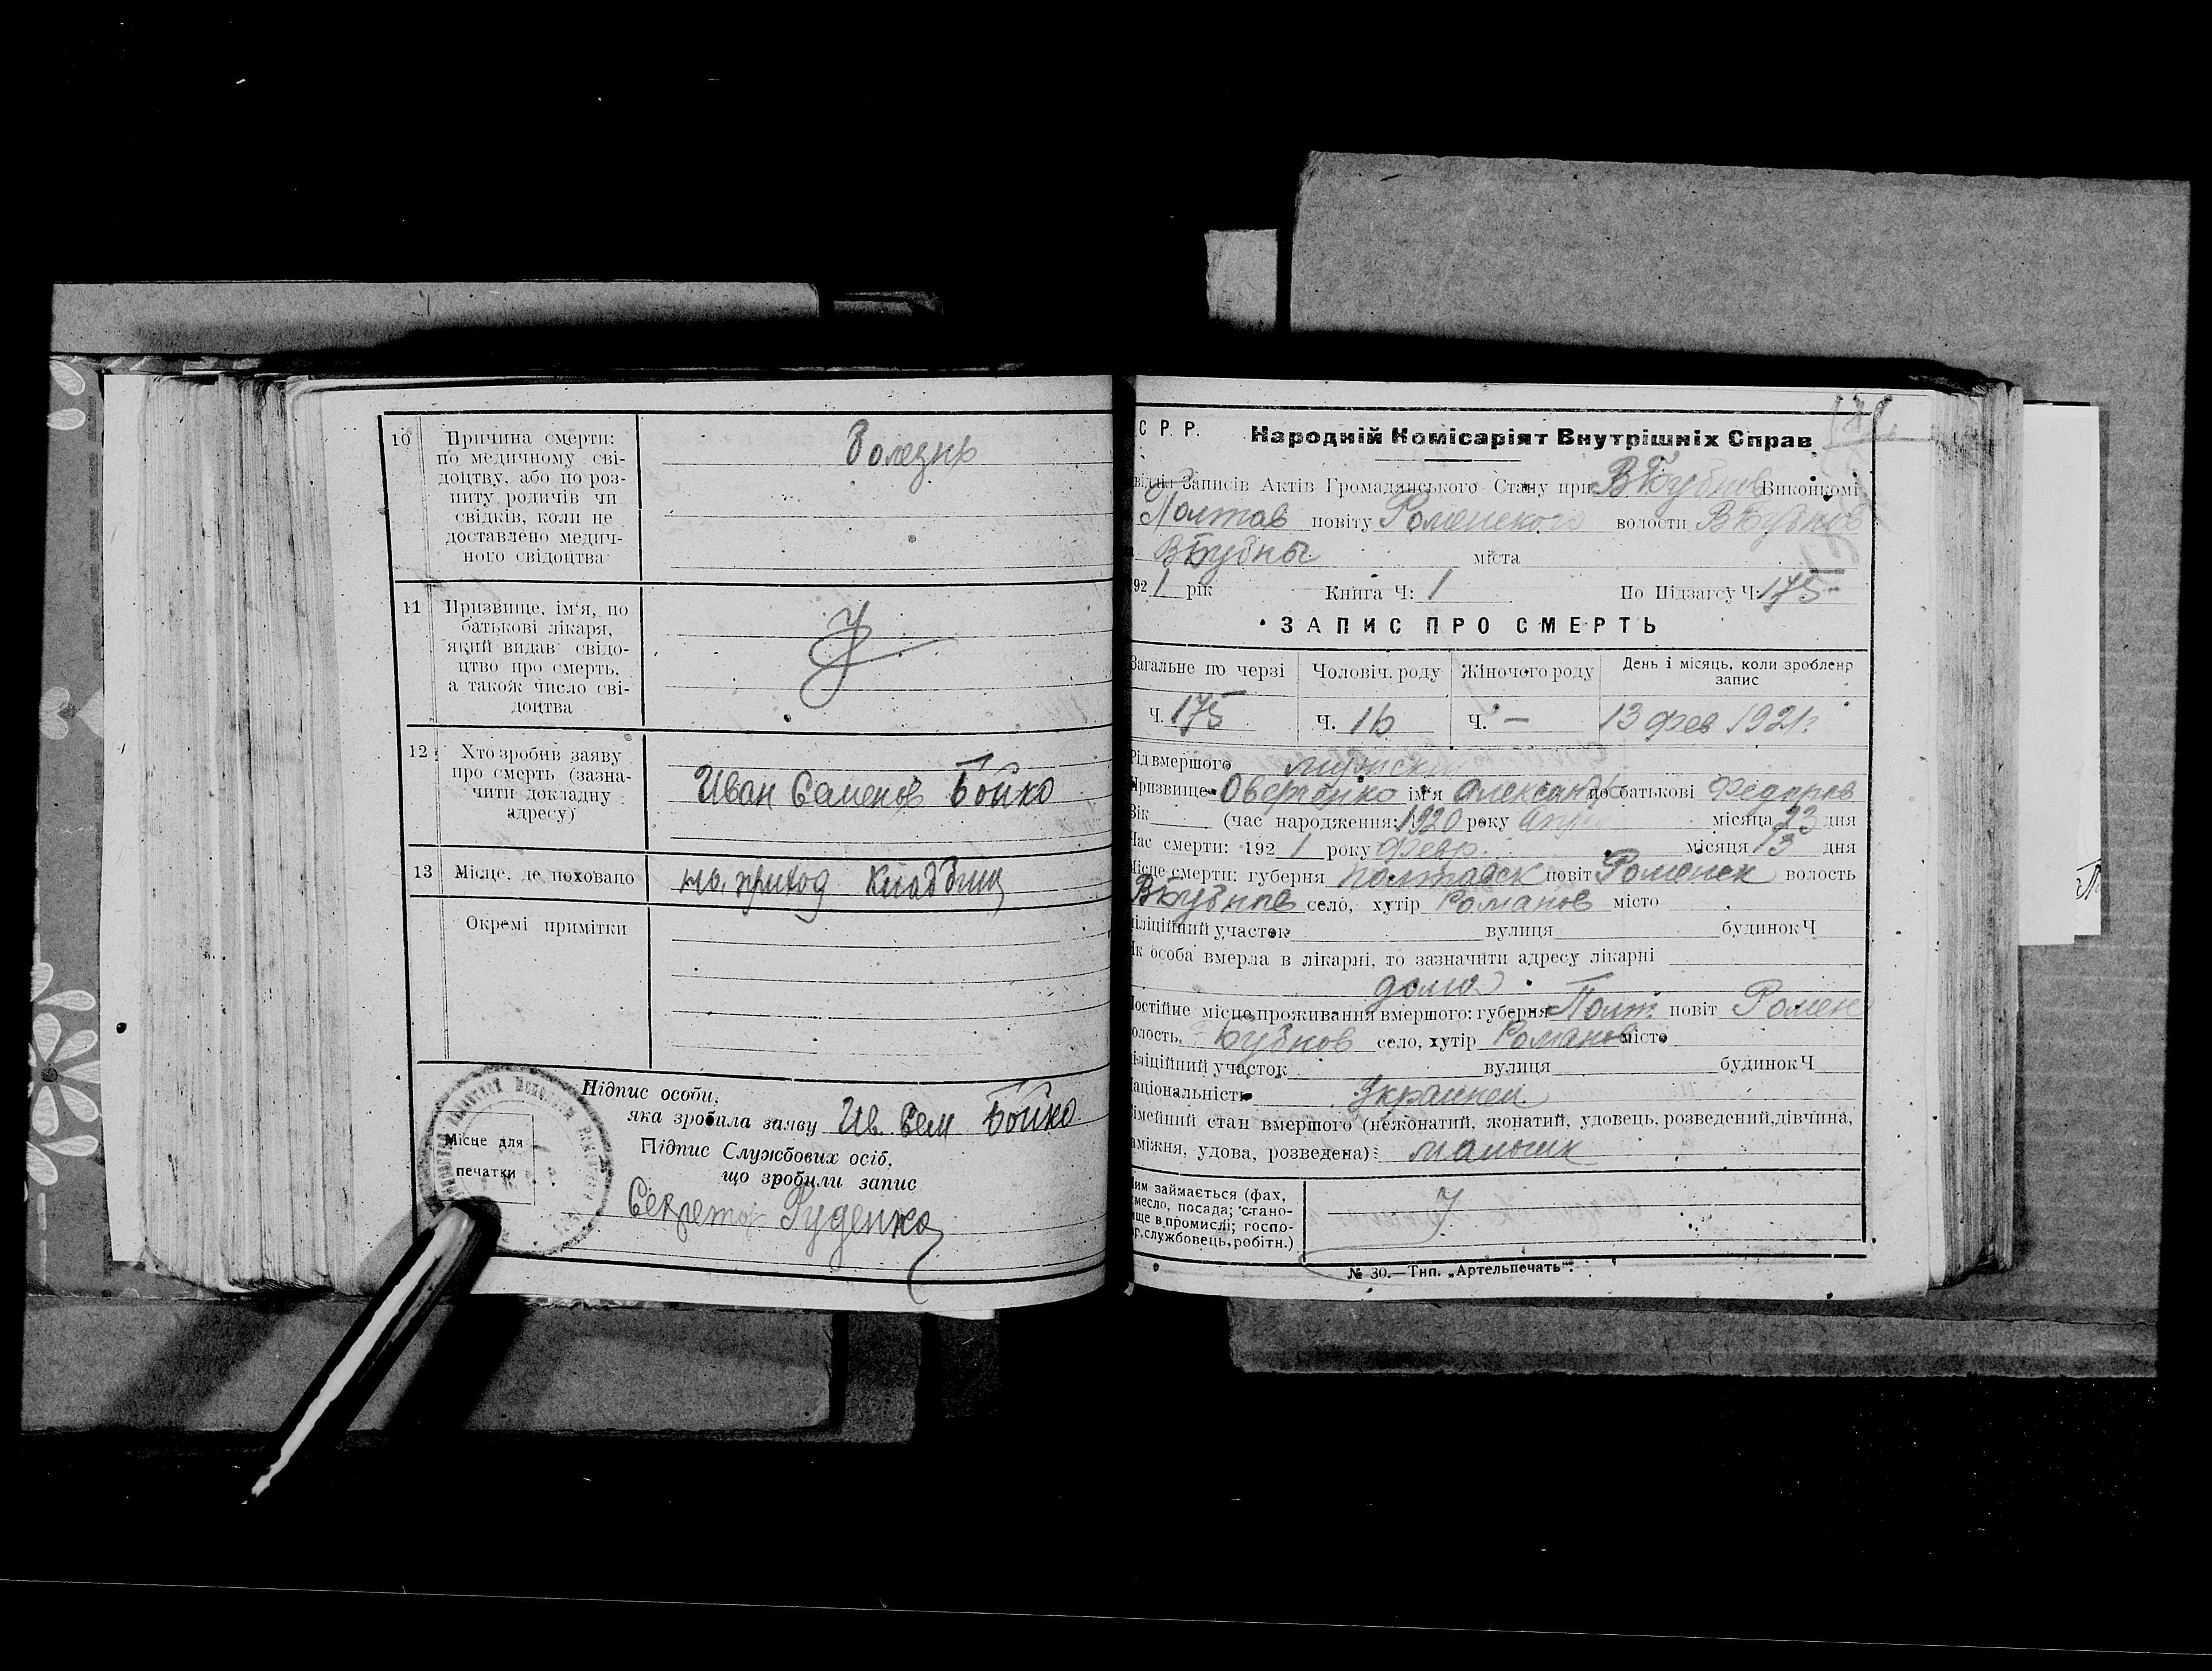 10
Причина смерти:
по медичному сві-
доцтву, або по роз-
питу родичів чи
свідків, коли не
доставлено медич-
ного свідоцтва
Болезнь
11
Призвище, ім'я, по
батькові лікаря,
який видав свідо-
цтво про смерть,
а також число сві-
доцтва
12
Хто зробив заяву
про смерть (зазна-
чити докладну
адресу)
Иван Семенов Бойко
13 Місце, де поховано
на приход кладбищ
Окремі примітки
Місце для
печатки
Підпис особи,
яка зробила заяву Ив. Сем Бойко
Підпис Службових осіб,
що зробили запис
Секретар Руденко
С Р. Р. Народній Комісаріят Внутрішніх Справ
Записів Актів Громадянського Стану при ВБубнов Виконкомі
Полтав повіту Роменского волости ВБубнов
ВБубны міста
92 1 рік Книга Ч: 1 По Підзагсу Ч: 175
ЗАПИС ПРО СМЕРТЬ
Загальне по черзі Чоловіч. роду Жіночого роду День і місяць, коли зроблено
запис
Ч. 175 Ч. 16 Ч. — 13 фев 1921г
Рід вмершого мужской
Призвище ім'я Александр по батькові Федоров
Вік (час народження: 1920 року місяца 23 дня
Час смерти: 192 1 року Февр. місяця 13 дня
Місце смерти: губерня Полтавск повіт Роменск волость
ВБубнов село, хутір Романов місто
міліційний участок вулиця будинок Ч
Як особа вмерла в лікарні, то зазначити адресу лікарні
дома
Постійне місце проживання вмершого: губерня Полт. повіт Ромен
волость, Бубнов село, хутір Романов місто
міліційний участок вулиця будинок Ч
Національність Украинец
сімейний стан вмершого (нежонатий, жонатий, удовець, розведений, дівчина,
заміжня, удова, розведена): мальчик
Чим займається (фах,
ремесло, посада; стано-
вище в промислі; госпо-
дар, службовець, робітн.)
№ 30.—Тип. „Артельпечать".